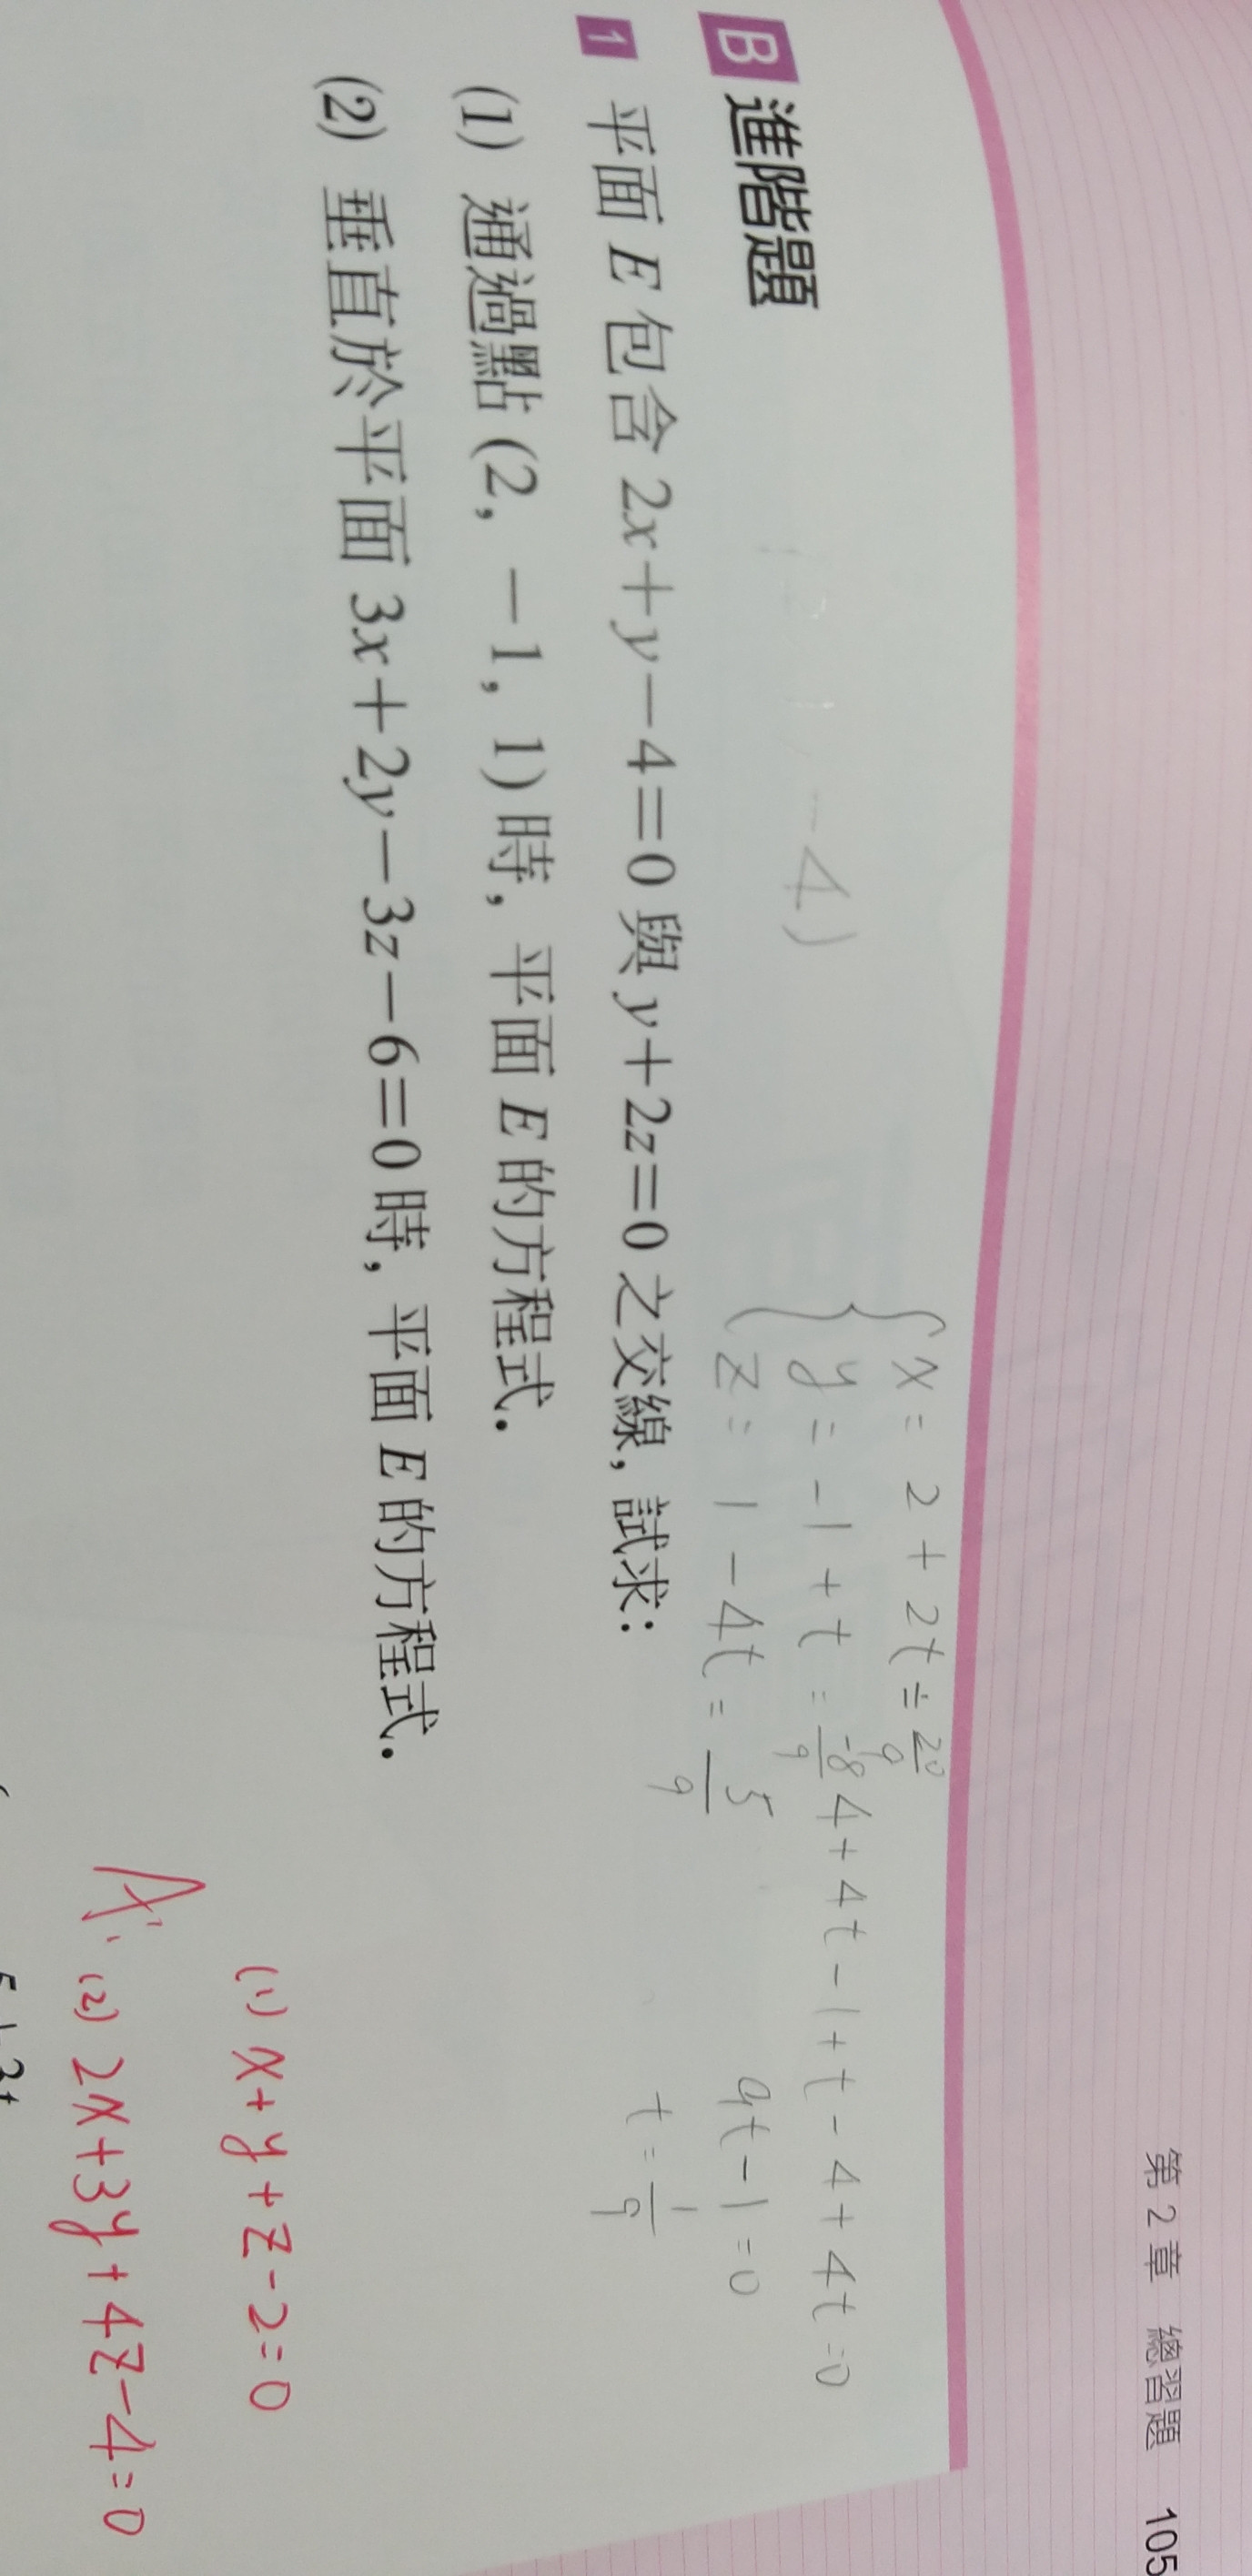 第 2 章 總習題 105
B 進階題
-4)
{ x = 2 + 2t = 20/9
y = -1 + t = -8/9
z = 1 - 4t = 5/9
4 + 4t - 1 + t - 4 + 4t = 0
9t - 1 = 0
t = 1/9
1 平面 E 包含 2x+y−4=0 與 y+2z=0 之交線，試求：
(1) 通過點 (2, −1, 1) 時，平面 E 的方程式．
(2) 垂直於平面 3x+2y−3z−6=0 時，平面 E 的方程式．
(1) x + y + z - 2 = 0
A: (2) 2x + 3y + 4z - 4 = 0